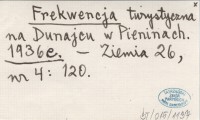 Frekwencja turystyczna
na Dunajcu w Pieninach.
1936 r. – Ziemia 26,
nr 4: 120.